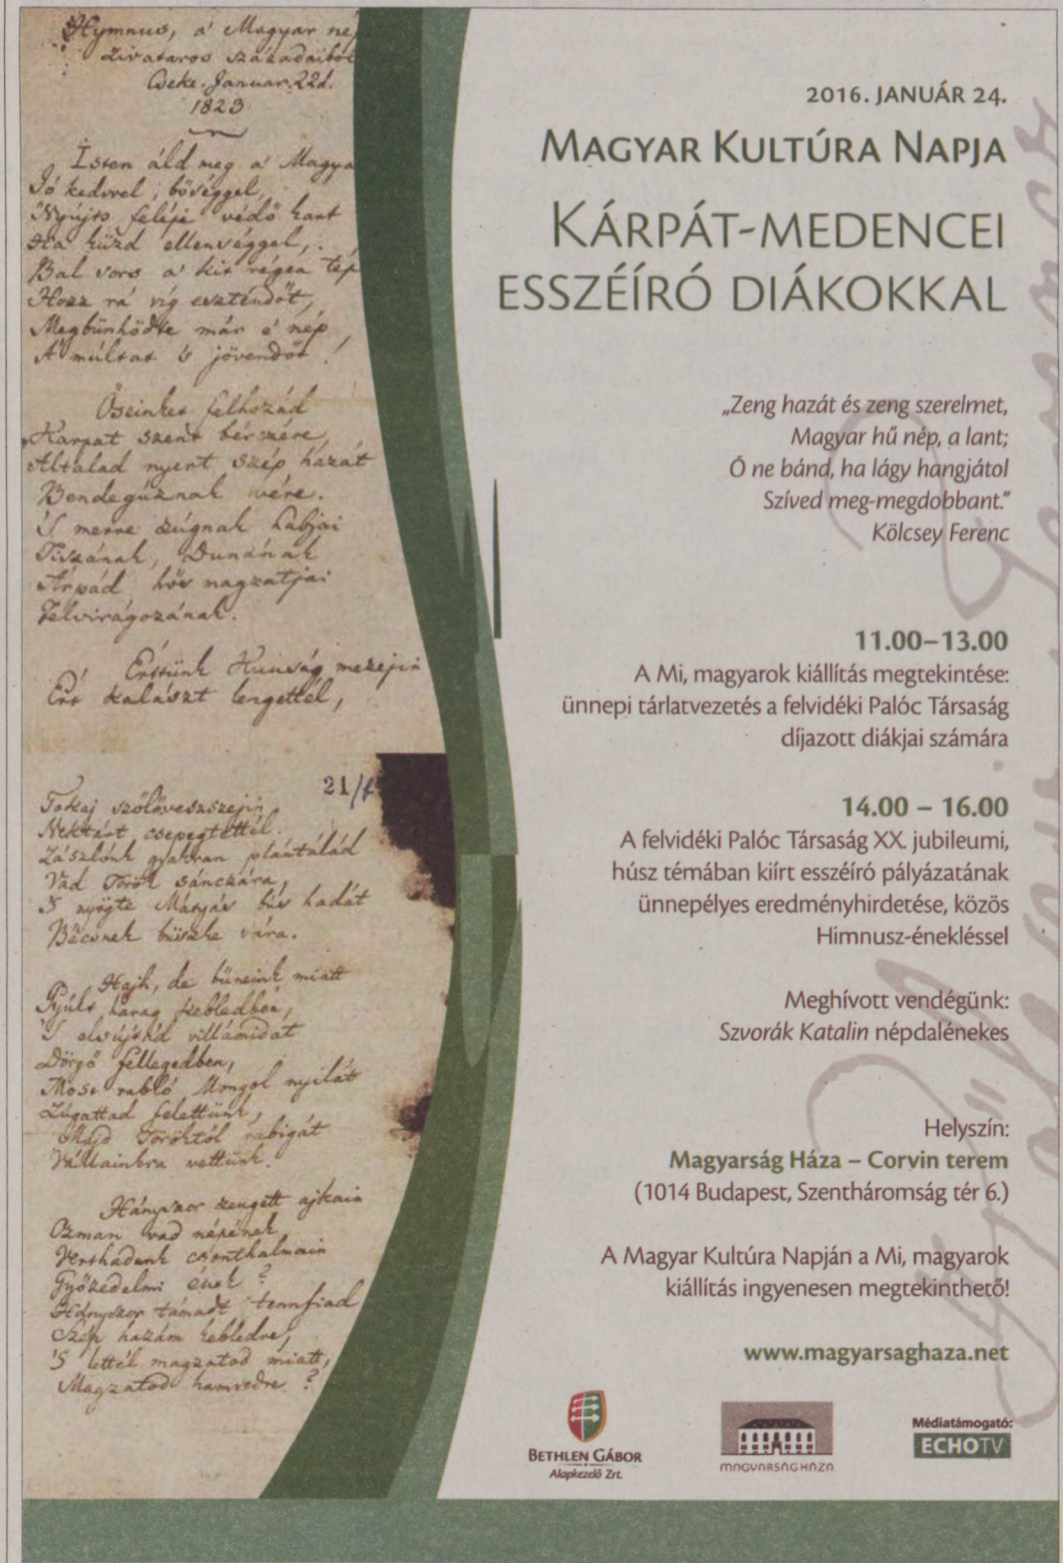 Hymnus, a' Magyar nép
zivataros századaiból
Cseke. Januar. 22d.
1823
Isten áld meg a' Magya
Jó kedvvel, bőséggel,
Nyújts feléje védő kart
Ha küzd ellenséggel,
Bal sors a' kit régen tép
Hozz rá víg esztendőt,
Megbünhödte már e' nép
A' múltat 's jövendőt!
Őseinket felhozád
Kárpát szent bérczére,
Általad nyert szép hazát
Bendegúznak vére.
'S merre zúgnak habjai
Tiszának, Dunának
Árpád hős magzatjai
Felvirágozának.
Értünk Kunság mezejin
Ért kalászt lengettél,
21/1
Tokaj szőlővesszejin
Nektárt csepegtettél.
Zászlónk gyakran plántálád
Vad Török sánczára,
'S nyögte Mátyás bús hadát
Bécsnek büszke vára.
Hajh, de bűneink miatt
Gyúlt harag kebledben,
'S elsújtád villámidat
Dörgő fellegedben,
Most rabló Mongol nyilát
Zúgattad felettünk,
Majd Töröktől rabigát
Vállainkra vettünk.
Hányszor zengett ajkain
Ozman vad népének
Vert hadunk csonthalmain
Győzedelmi ének?
Hányszor támadt tennfiad
Szép hazám kebledre,
'S lettél magzatod miatt,
Magzatod hamvedre?
2016. JANUÁR 24.
MAGYAR KULTÚRA NAPJA
KÁRPÁT-MEDENCEI
ESSZÉÍRÓ DIÁKOKKAL
„Zeng hazát és zeng szerelmet,
Magyar hű nép, a lant;
Ó ne bánd, ha lágy hangjátol
Szíved meg-megdobbant."
Kölcsey Ferenc
11.00–13.00
A Mi, magyarok kiállítás megtekintése:
ünnepi tárlatvezetés a felvidéki Palóc Társaság
díjazott diákjai számára
14.00 – 16.00
A felvidéki Palóc Társaság XX. jubileumi,
húsz témában kiírt esszéíró pályázatának
ünnepélyes eredményhirdetése, közös
Himnusz-énekléssel
Meghívott vendégünk:
Szvorák Katalin népdalénekes
Helyszín:
Magyarság Háza – Corvin terem
(1014 Budapest, Szentháromság tér 6.)
A Magyar Kultúra Napján a Mi, magyarok
kiállítás ingyenesen megtekinthető!
www.magyarsaghaza.net
BETHLEN GÁBOR
Alapkezelő Zrt.
MAGYARSÁG HÁZA
Médiatámogató:
ECHO TV